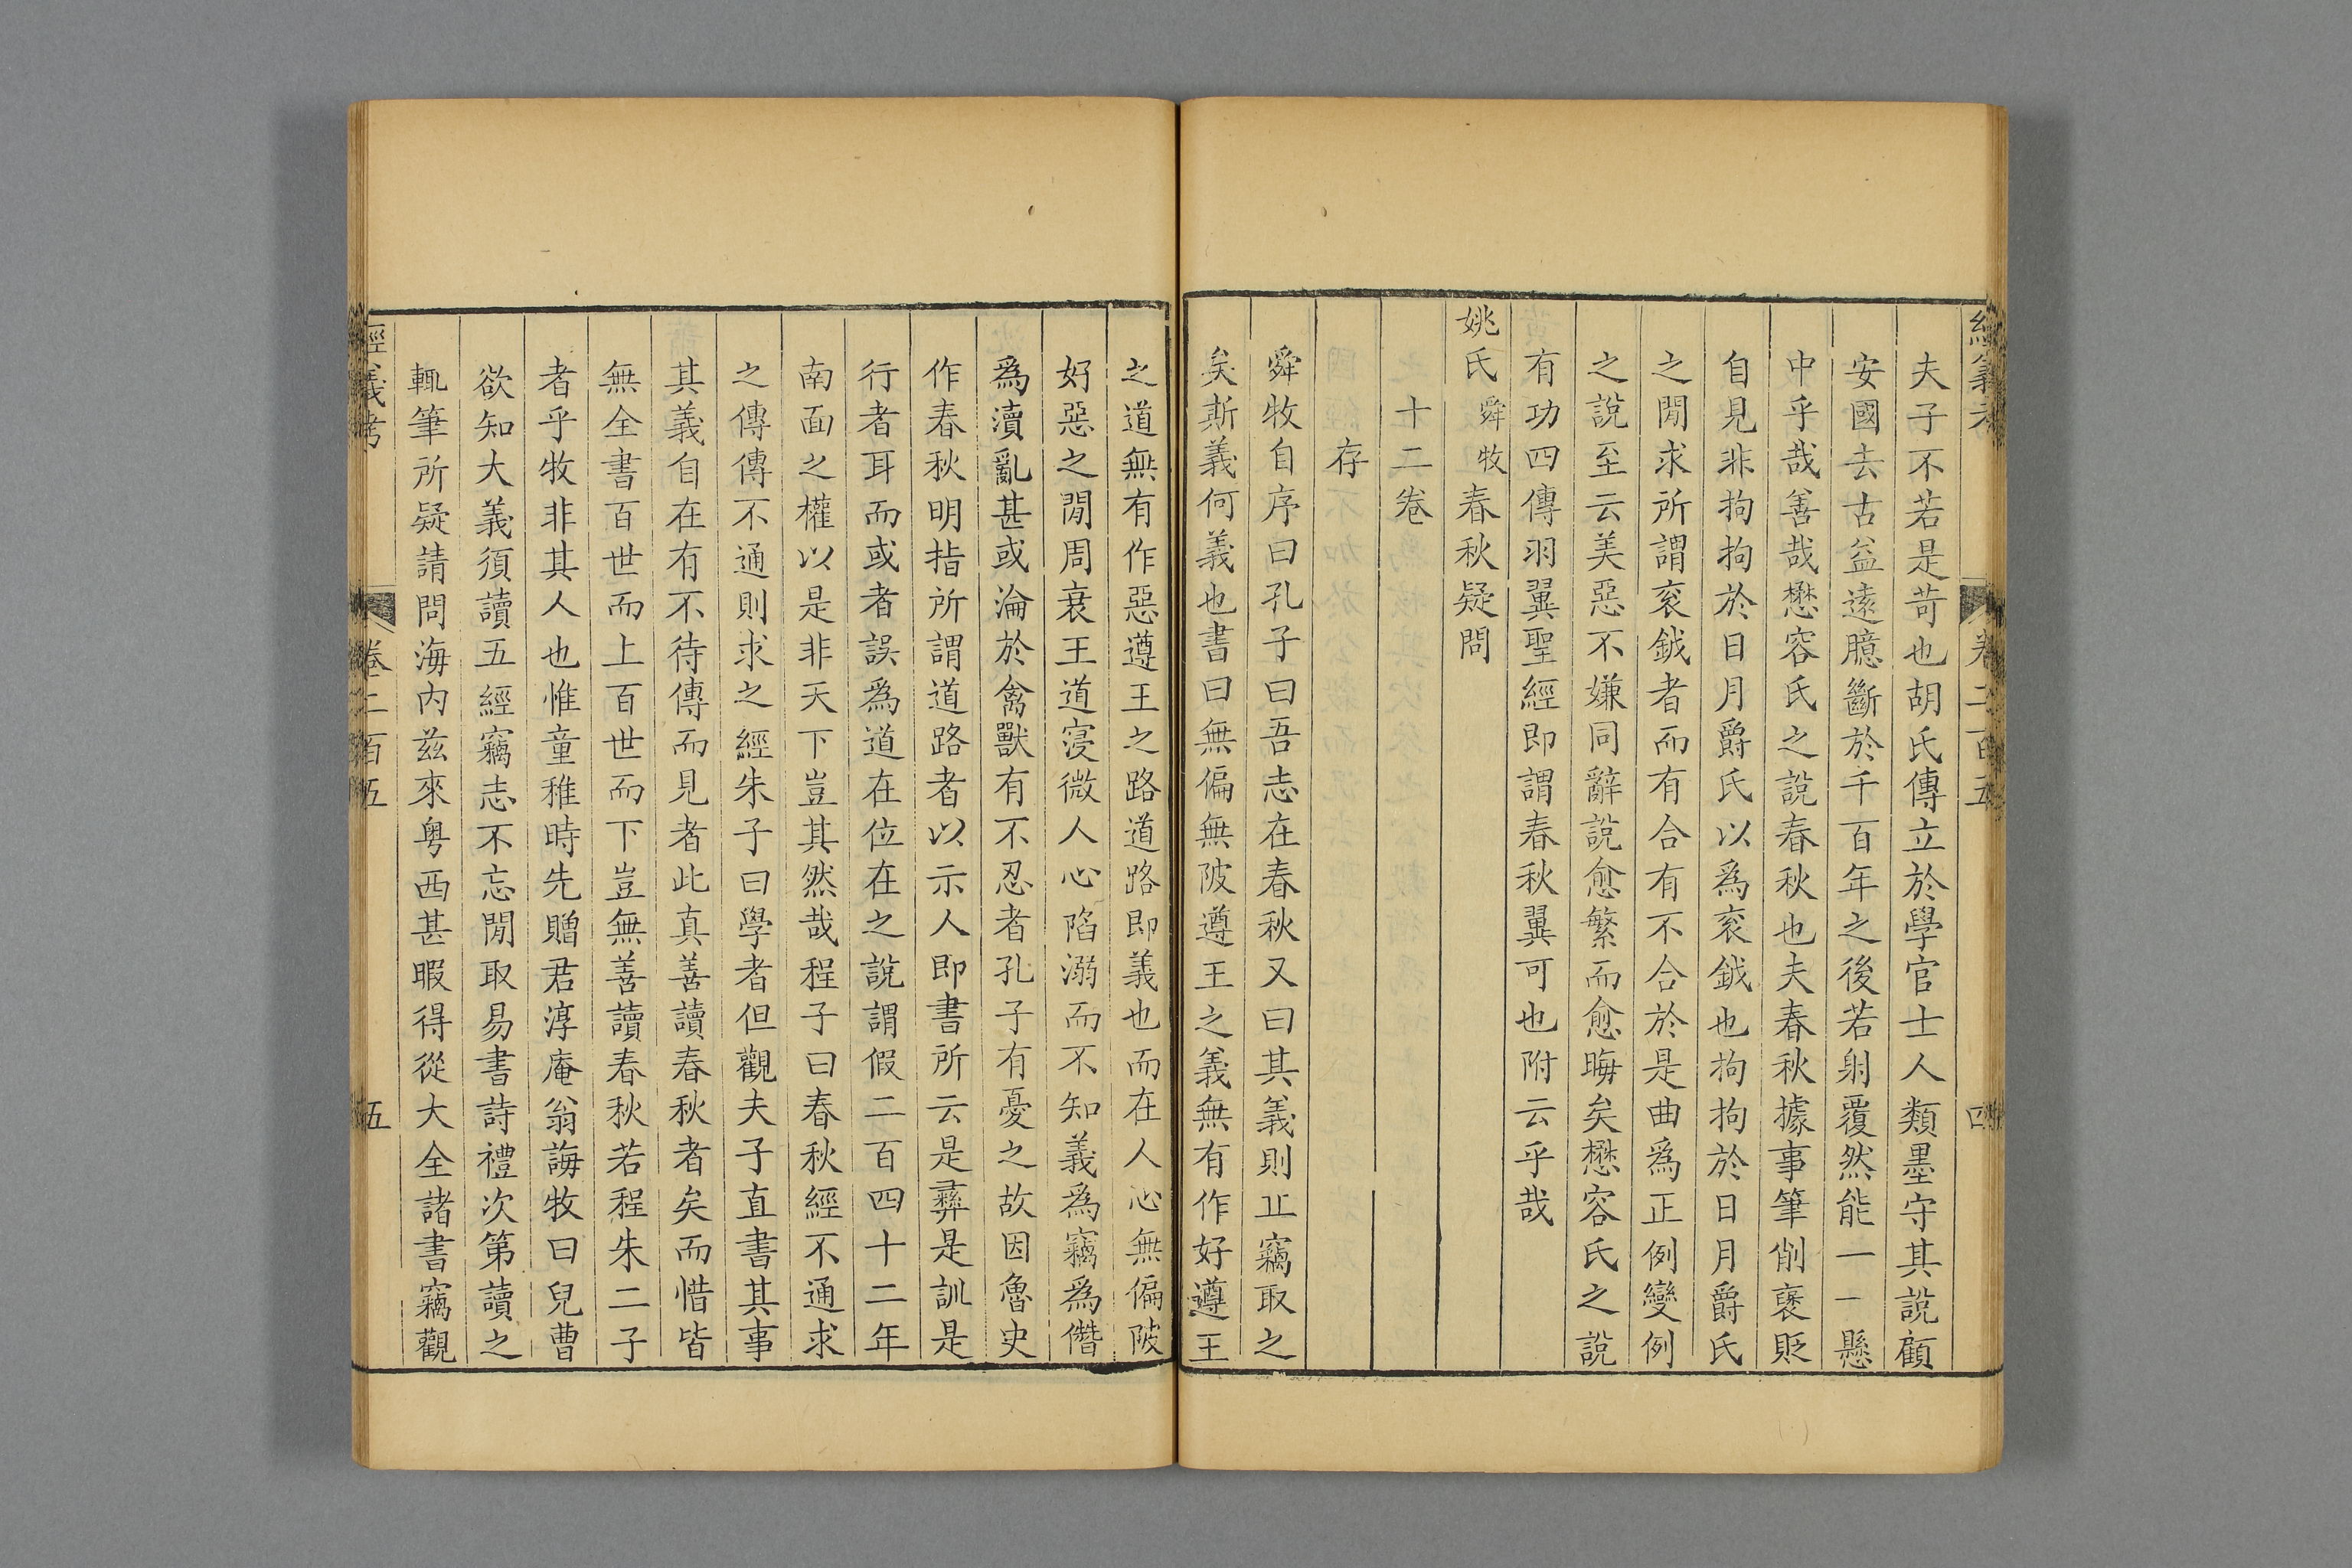 經義考 卷二百五 四
夫子不若是苛也胡氏傳立於學官士人類墨守其說顧
安國去古益遠臆斷於千百年之後若射覆然能一一懸
中乎哉善哉懋容氏之說春秋也夫春秋據事筆削襃貶
自見非拘拘於日月爵氏以爲衮鉞也拘拘於日月爵氏
之閒求所謂衮鉞者而有合有不合於是曲爲正例變例
之說至云美惡不嫌同辭說愈繁而愈晦矣懋容氏之說
有功四傳羽翼聖經即謂春秋翼可也附云乎哉
姚氏舜牧春秋疑問
十二卷
存
舜牧自序曰孔子曰吾志在春秋又曰其義則丘竊取之
矣斯義何義也書曰無偏無陂遵王之義無有作好遵王
之道無有作惡遵王之路道路即義也而在人心無偏陂
好惡之閒周衰王道寖微人心陷溺而不知義爲竊爲僭
爲瀆亂甚或淪於禽獸有不忍者孔子有憂之故因魯史
作春秋明指所謂道路者以示人即書所云是彝是訓是
行者耳而或者誤爲道在位在之說謂假二百四十二年
南面之權以是非天下豈其然哉程子曰春秋經不通求
之傳傳不通則求之經朱子曰學者但觀夫子直書其事
其義自在有不待傳而見者此真善讀春秋者矣而惜皆
無全書百世而上百世而下豈無善讀春秋若程朱二子
者乎牧非其人也惟童稚時先贈君淳庵翁誨牧曰兒曹
欲知大義須讀五經竊志不忘閒取易書詩禮次第讀之
輒筆所疑請問海內兹來粤西甚暇得從大全諸書竊觀
經義考 卷二百五 五